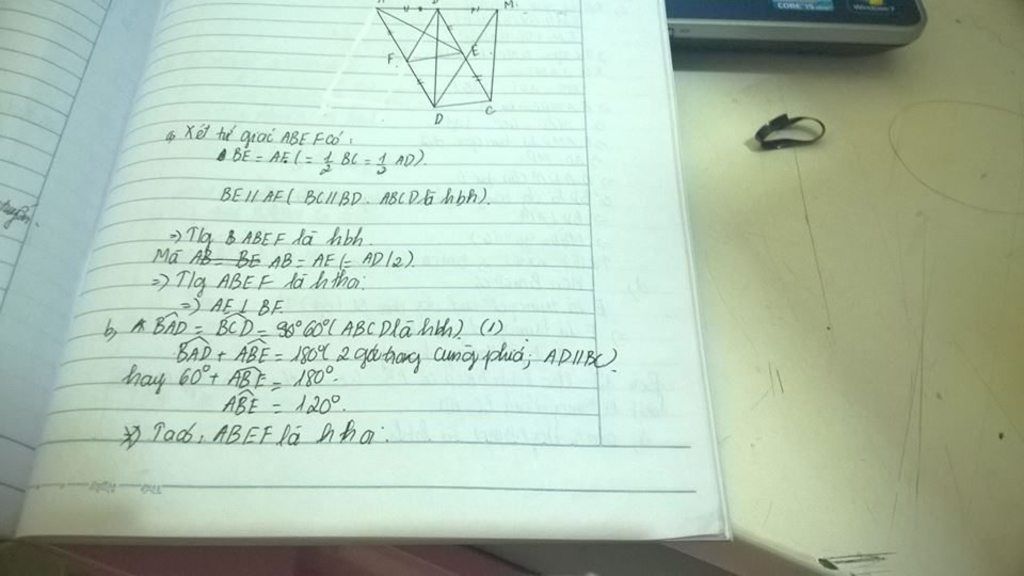 M
F
E
D
C
a, Xét tứ giác ABEF có:
BE = AF (= 1/2 BC = 1/2 AD).
BE // AF ( BC // BD. ABCD là hbh).
=> Tlg ABEF là hbh.
Mà AB = BE AB = AF (= AD/2).
=> Tlg ABEF là hthoi.
=> AE ⊥ BF.
b, BAD = BCD = 60° (ABCD là hbh) (1)
BAD + ABE = 180° ( 2 góc trong cùng phía; AD // BC)
hay 60° + ABE = 180°.
ABE = 120°.
Ta có: ABEF là hthoi.
CORE i5
Windows 7